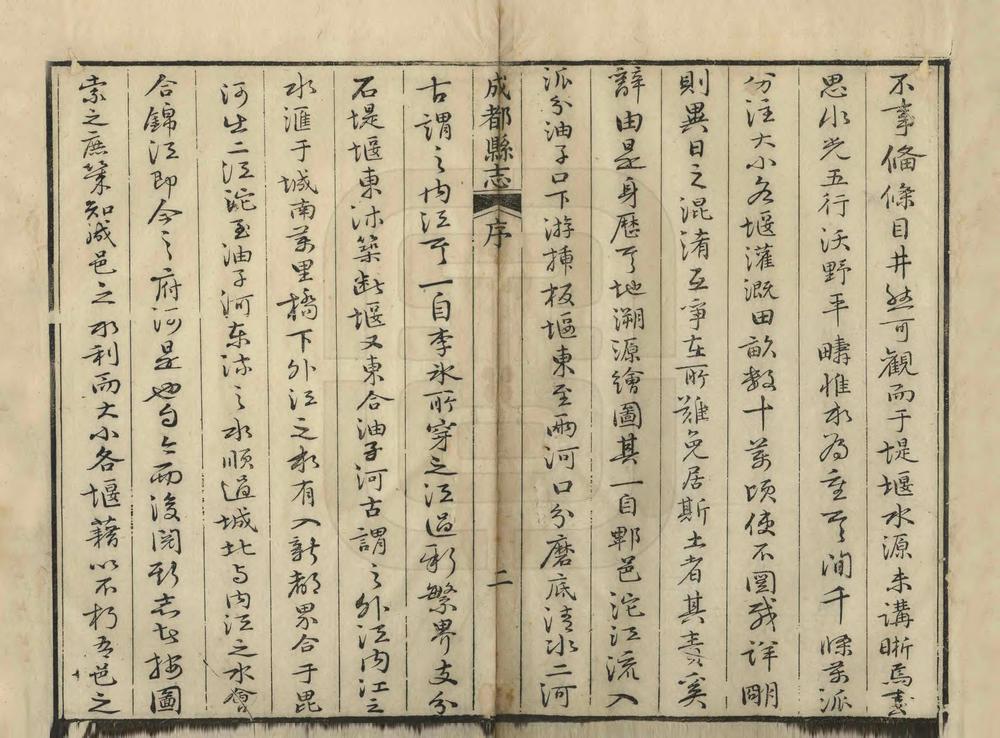 不事備條目井然可觀而于堤堰水源未講晰焉
思水光五行沃野平疇惟水為重淘千條萬派
分注大小各堰灌溉田畝數十萬頃使不圖或詳明
則異日之混淆互爭在所難免居斯土者其責奚
辭由是身歷其地溯源繪圖其一自郫邑沱江流入
派分油子口下游揷板堰東至兩河口分磨底清水二河
成都縣志 序 二
古謂之內江一自李冰所穿之江過新繁界支分
石堤堰東流築斷堰又東合油子河古謂之外江內江之
水滙于城南萬里橋下外江之水有入新都界合于毘
河出二江沱至油子河東流之水順道城北與內江之水會
合錦江即今之府河是也自今而後閱新志者按圖
索之庶幾知成邑之水利而大小各堰藉以不朽吾邑之